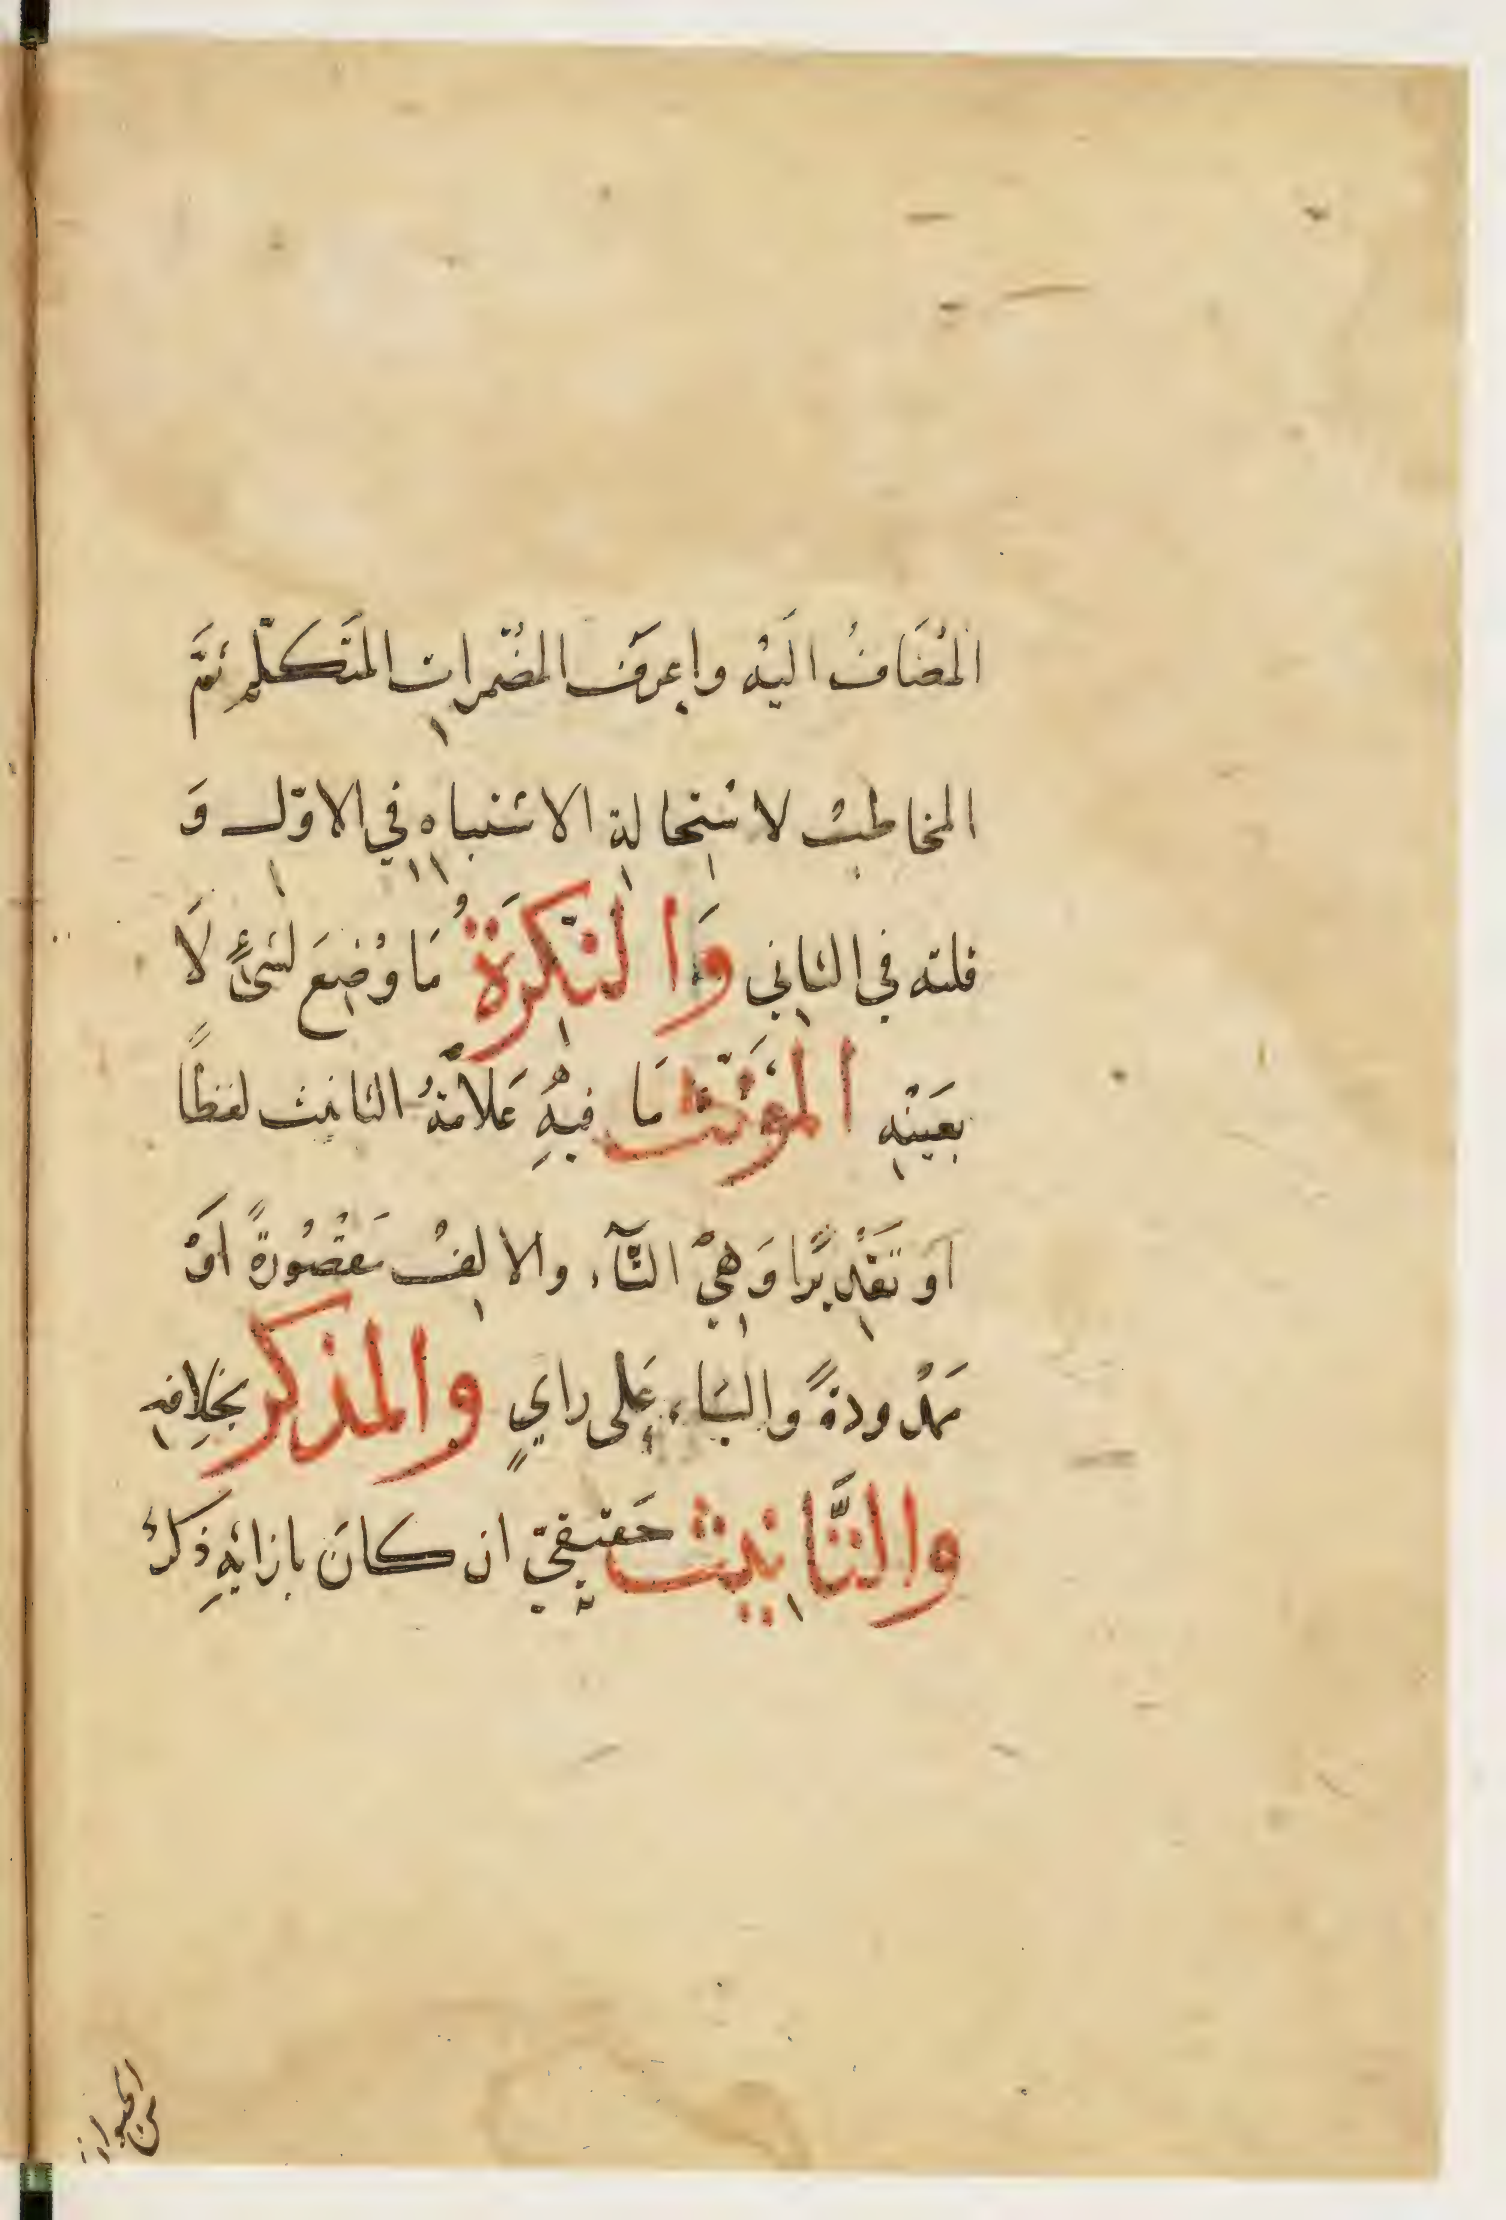 المُضَافُ اليَهْ واعرَف المضْمرات المتَكلّم ثمَّ
المخاطبُ لاستحالة الاشتباه في الاوّل وَ
قلته في الثاني وَالنّكرَةُ مَا وُضِعَ لشئٍ لَا
بعَيْنه المؤَنّث مَا فيهِ عَلامَةُ التانيث لفظًا
او تَقْديرًا وَهيْ التّآء والالِفُ مَقْصُورَةً اَوْ
مَمْدودةً والياء عَلى رايٍ والمذكر بخِلافه
والتَّانيث حَقيقيّ ان كانَ بازائهِ ذكرٌ
من الحيوان